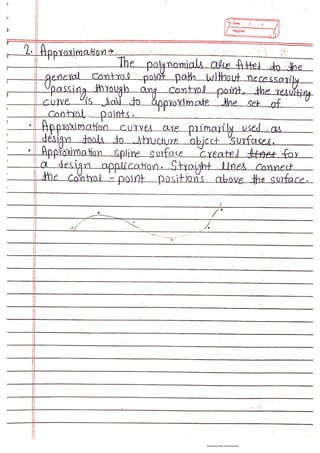 Date / /
Page No.
2. Approximation →
The polynomials are fitted to the
general control point path without necessarily
passing through any control point, the resulting
curve is said to approximate the set of
control points.
• Approximation curves are primarily used as
design tools to structure object surfaces.
• Approximation spline surface created for
a design application. Straight lines connect
the control - point positions above the surface.
Scanned with CamScanner